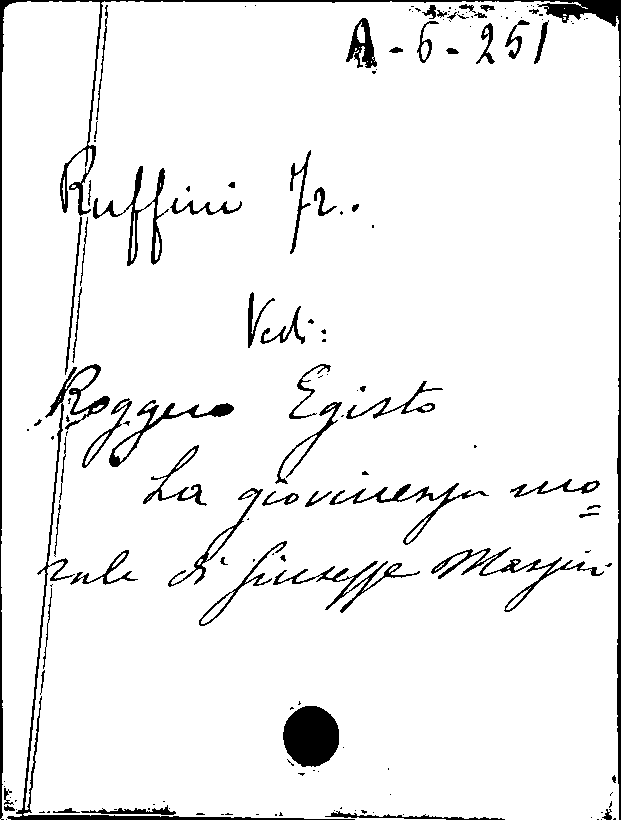 A-6-251
Ruffini Fr..
Vedi:
Roggero Egisto
La giovinezza mo=
rale di Giuseppe Mazzini